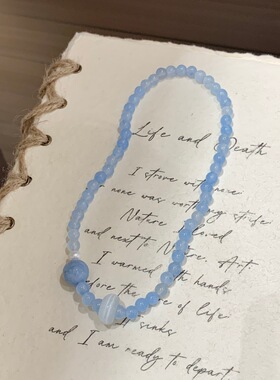 Life and Death
I strove with none
none was worth my strife
Nature I loved
and next to Nature, Art.
I warmed hands
before the of life
It sinks
and I am ready to depart